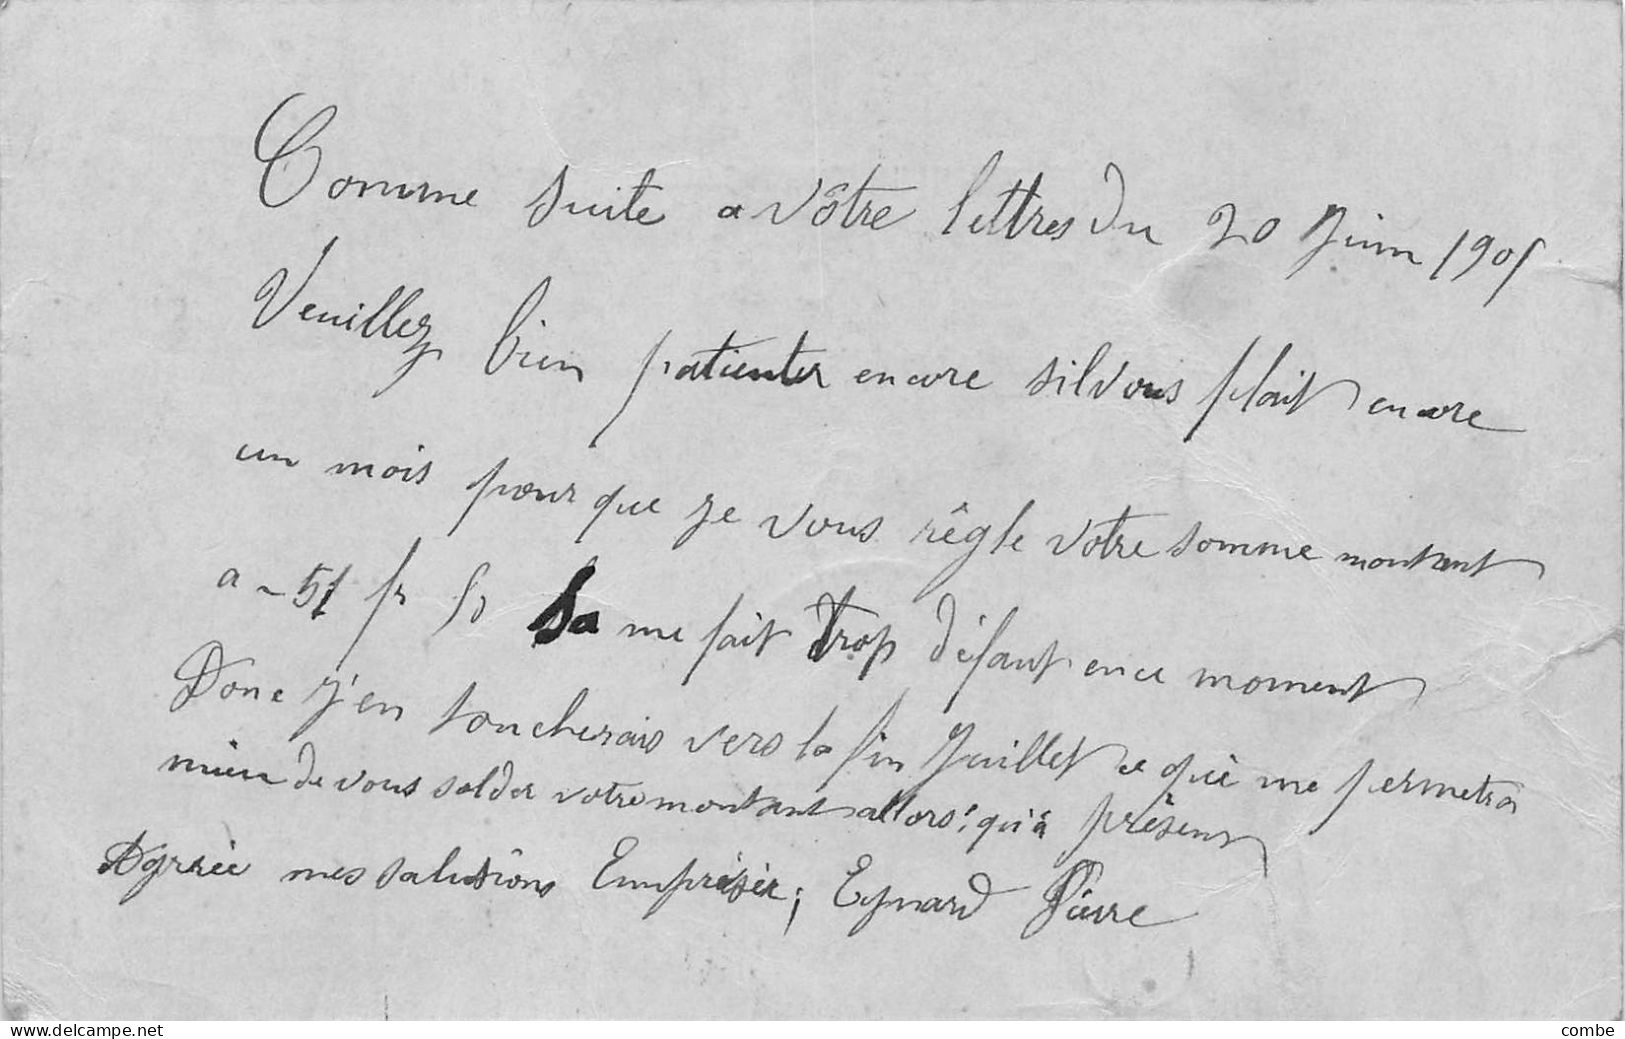 Comme suite a vôtre lettres du 20 Juin 1905
Veuillez bien patienter encore silvous plait encore
un mois pour que je vous règle votre somme montant
a - 51 fr 50 Sa me fait trop défaut en ce moment
Donc j'en toucherais vers la fin Juillet ce qui me permetra
mieu de vous solder votre montant allors qu'à présent
Agrèe mes salutiôns Emprésèr; Eynard Pierre
www.delcampe.net
combe